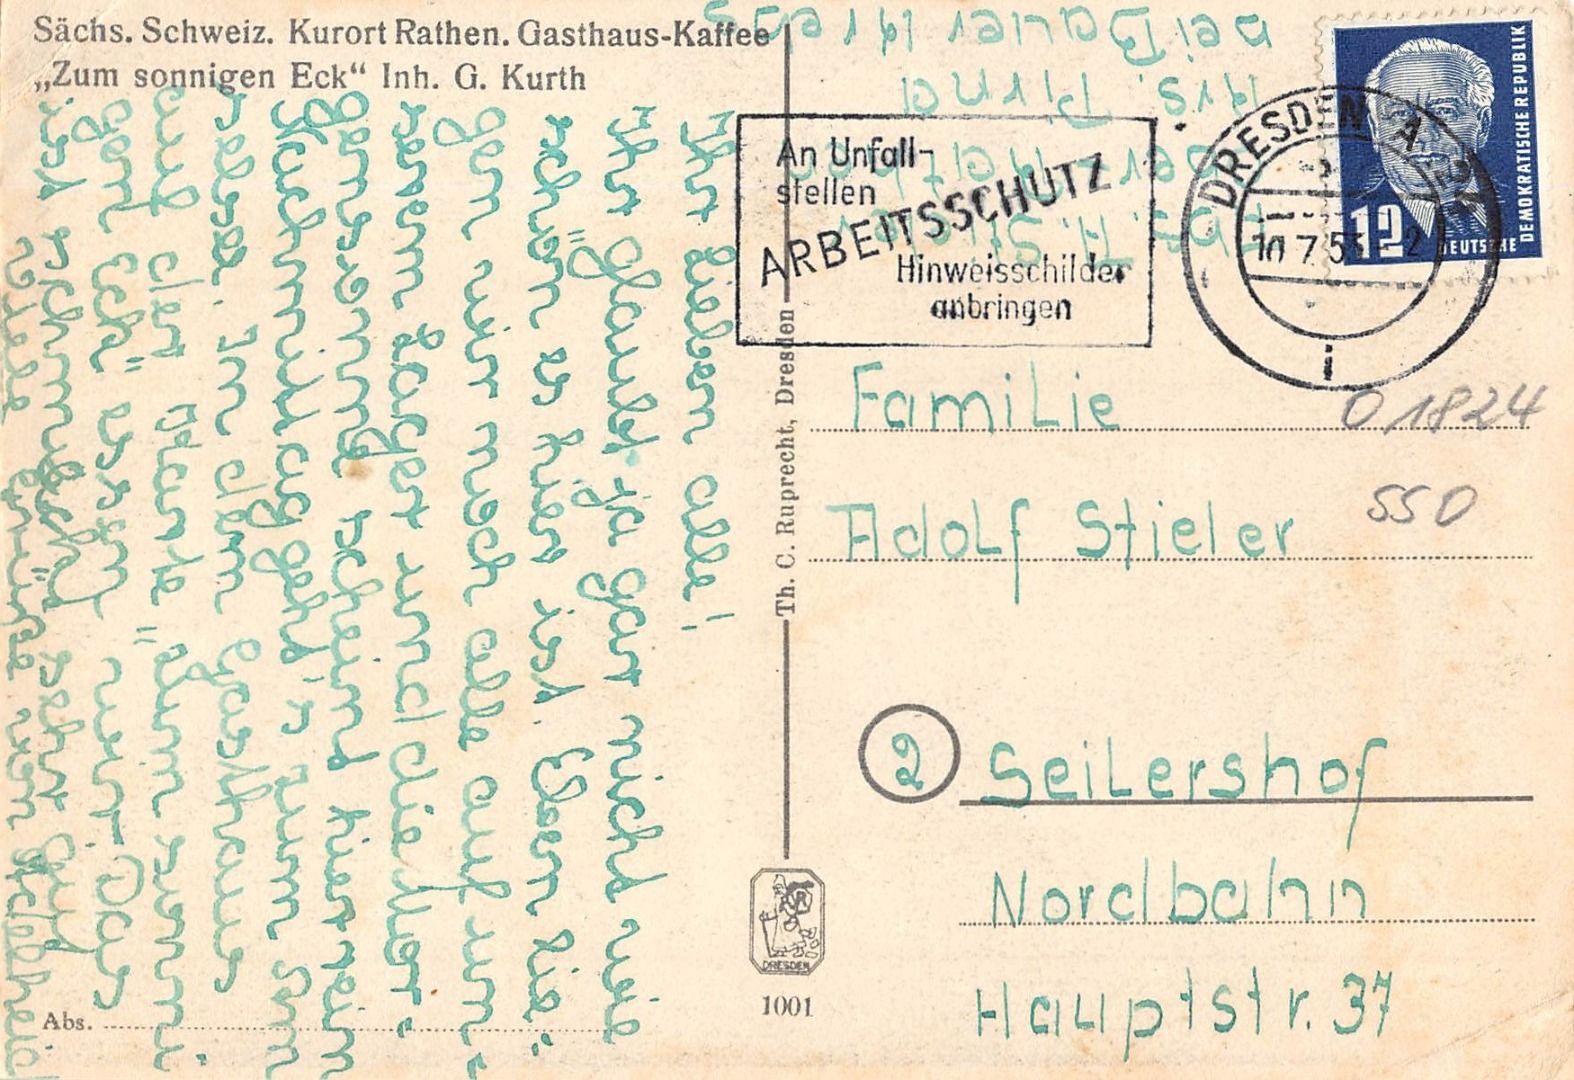 Sächs. Schweiz. Kurort Rathen. Gasthaus-Kaffee
„Zum sonnigen Eck“ Inh. G. Kurth
Ihr lieben alle!
Ihr glaubt ja gar nicht wie
schön es hier ist. Eben lie-
gen wir noch alle auf un-
serem Lager und die Mor-
gensonne scheint hier rein
Nachmittag geht's zum Sm
In dem Gasthaus
auf der Karte „Zum sonni
gen Eck“
ist nämlich sehr gut
viele Grüße von Adelheid
Abs.
Th. C. Ruprecht, Dresden
DRESDEN
1001
An Unfall-
stellen
ARBEITSSCHUTZ
Hinweisschilder
anbringen
DRESDEN A
10.7.53
i
12
DEUTSCHE
DEMOKRATISCHE REPUBLIK
Abs. A. Stieler
Krs. Pirna
bei Bauer
Familie
01824
Adolf Stieler
550
2 Seilershof
Nordbahn
Hauptstr. 37